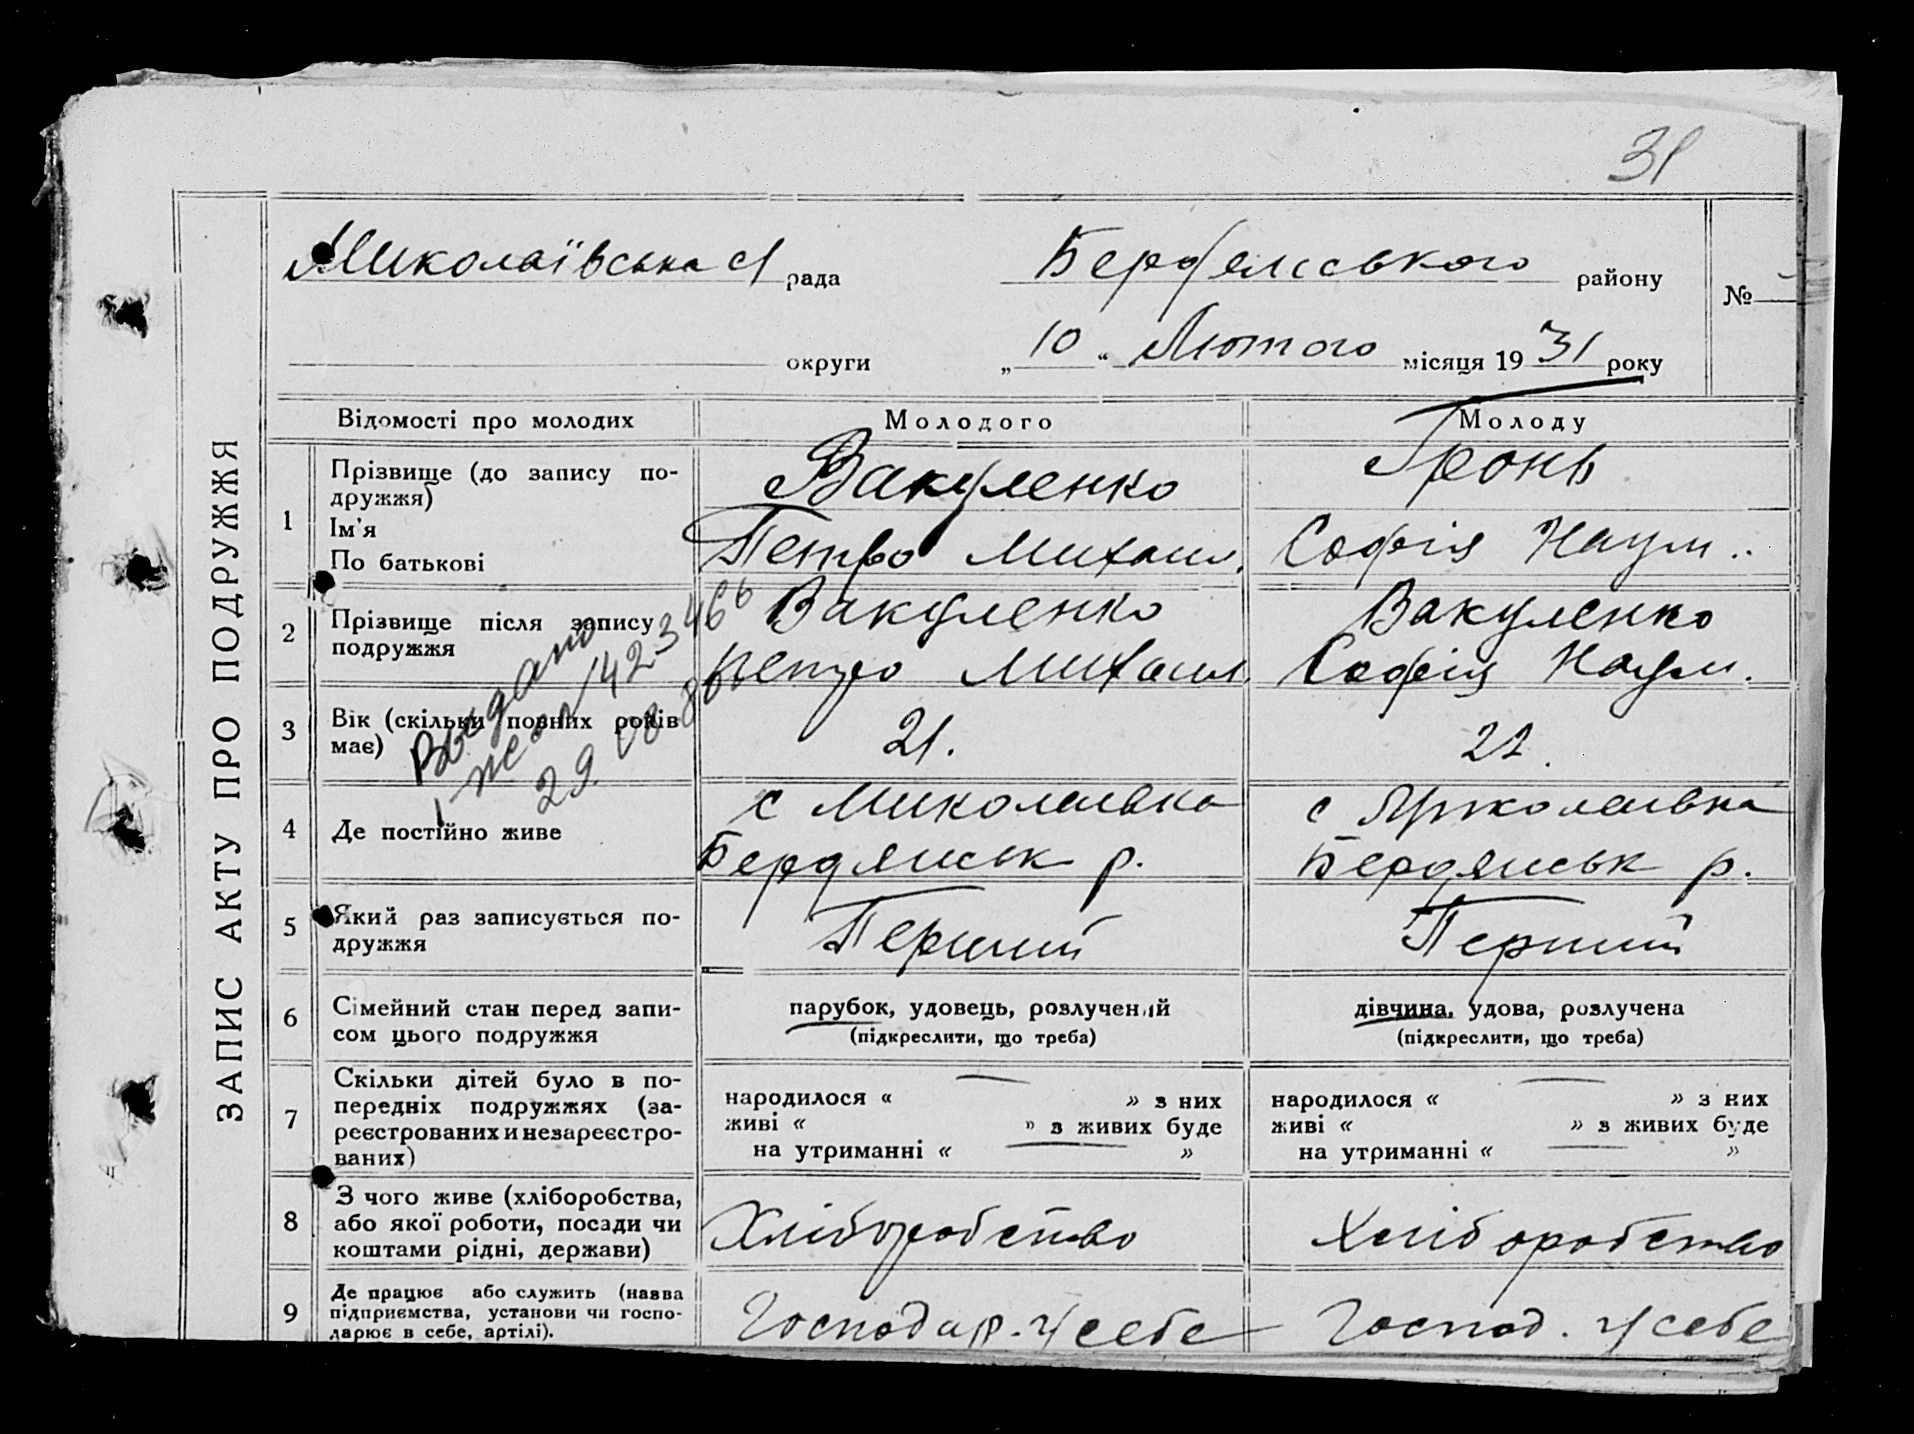 31
Миколаївська с/ рада Бердянського району №
округи „10“ Лютого місяця 1931 року
ЗАПИС АКТУ ПРО ПОДРУЖЖЯ
Відомості про молодих Молодого Молоду
1 Прізвище (до запису по-
дружжя)
Ім'я
По батькові
Вакуленко
Петро Михаил.
Гронь
Софія Наум..
2 Прізвище після запису
подружжя
Вакуленко
Петро Михаил.
Вакуленко
Софія Наум.
3 Вік (скільки повних років
має)
21.
21.
Выдано
29.08.86
4 Де постійно живе
с Миколаивка
Бердянськ р.
с Миколаивка
Бердянськ р.
5 Який раз записується по-
дружжя
Перший
Перший
6 Сімейний стан перед запи-
сом цього подружжя
парубок, удовець, розлучений
(підкреслити, що треба)
дівчина, удова, розлучена
(підкреслити, що треба)
7 Скільки дітей було в по-
передніх подружжях (за-
реєстрованих и незареєстро-
ваних)
народилося « » з них
живі « » з живих буде
на утриманні « »
народилося « » з них
живі « » з живих буде
на утриманні « »
8 З чого живе (хліборобства,
або якої роботи, посади чи
коштами рідні, держави)
Хліборобство
Хліборобство
9 Де працює або служить (назва
підприємства, установи чи госпо-
дарює в себе, артілі).
Господар. у себе
Господ. у себе